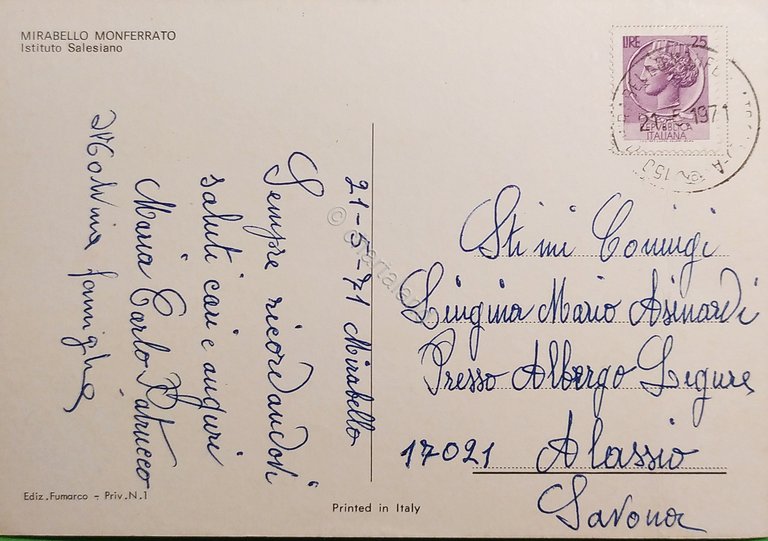 MIRABELLO MONFERRATO
Istituto Salesiano
LIRE 25
REPVBBLICA
ITALIANA
21-5-1971
21-5-71 Mirabello
Sempre ricordandoti
saluti cari e auguri
Maria Carlo Patrucco
famiglia
Stimi Coniugi
Lingina Mario Asinardi
Presso Albergo Ligure
17021 Alassio
Savona
Ediz.Fumarco - Priv.N.1
Printed in Italy
© cartalando